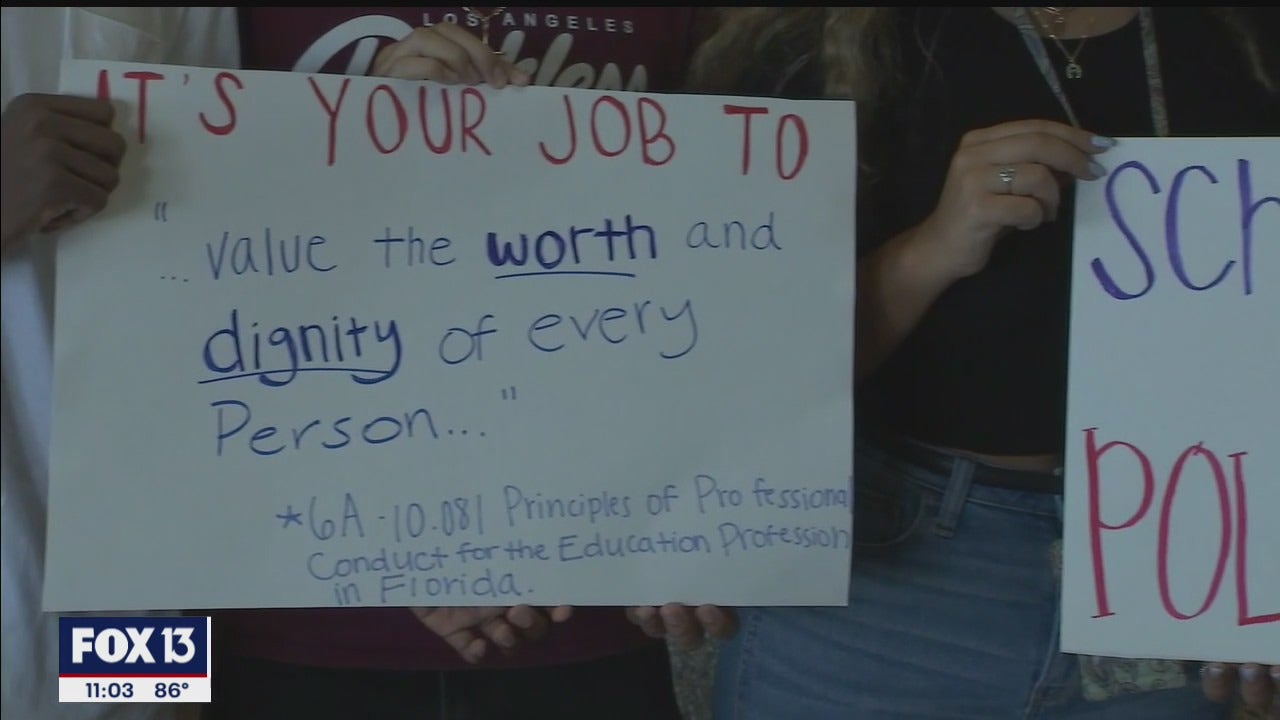 LOS ANGELES
IT'S YOUR JOB TO
"
...value the worth and
dignity of every
Person..."
*6A-10.081 Principles of Professional
Conduct for the Education Profession
in Florida.
SCH
POL
FOX 13
11:03 86°